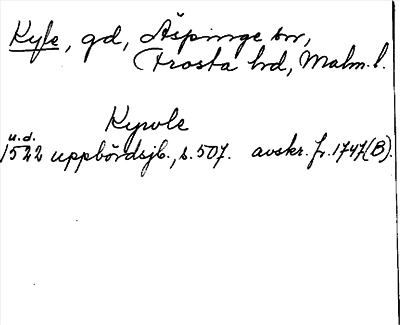 Kyle, gd, Äspinge sn,
Frosta hd, Malm. l.
Kyvle
u.d.
1522 uppbördsjb., s. 507. avskr. fr. 1747 (B).